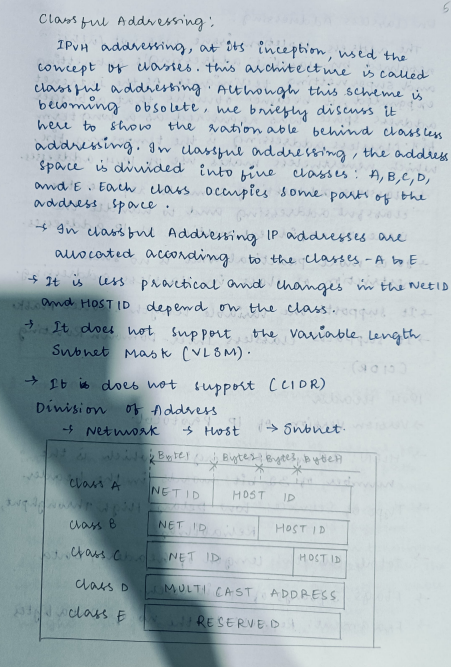 5
Classful Addressing:
IPv4 addressing, at its inception, used the
concept of classes. this architecture is called
classful addressing. Although this scheme is
becoming obsolete, we briefly discuss it
here to show the rationable behind classless
addressing. In classful addressing, the address
space is divided into five classes: A, B, C, D,
and E. Each class occupies some parts of the
address space.
→ In classful Addressing IP addresses are
allocated according to the classes - A to E
→ It is less practical and changes in the Net ID
and HOST ID depend on the class.
→ It does not support the variable length
Subnet Mask (VLSM).
→ It is does not support (CIDR)
Division of Address
→ Network → Host → Subnet.
Byte1 Byte2 Byte3 Byte4
Class A NET ID HOST ID
Class B NET ID HOST ID
Class C NET ID HOST ID
Class D MULTI CAST ADDRESS
Class E RESERVED